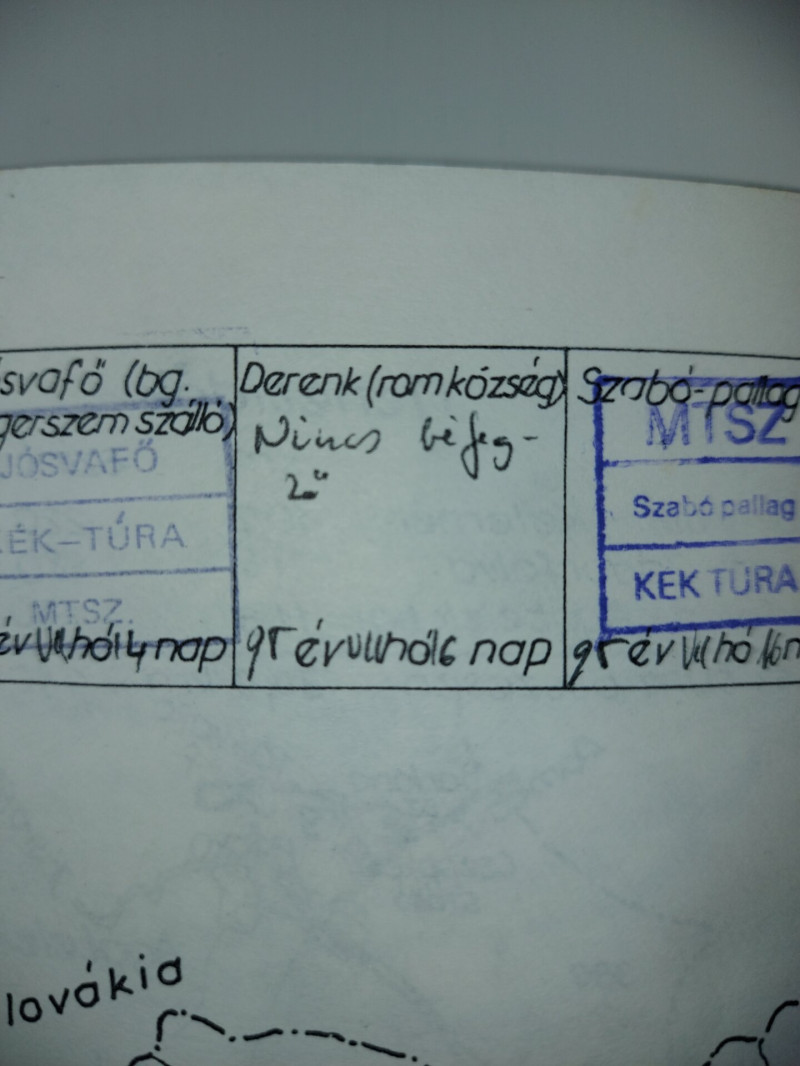 ósvafő (bg.
gerszem szálló)
JÓSVAFŐ
KÉK-TÚRA
MTSZ.
év VIII hó 14 nap
Derenk (romközség)
Nincs
95 év VIII hó 16 nap
Szabó-pallag
MTSZ
Szabó pallag
KÉK TÚRA
95 év VIII hó 16 n
lovákia